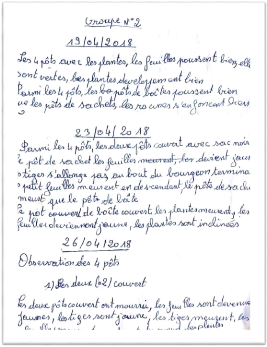 Groupe N°2
19/04/2018
Les 4 pôts avec les plantes, les feuilles poussent bien, elle
sont vertes, les plantes developpement bien
Parmi les 4 pôts, les pôts de boîtes poussent bien
que les pôts de sachets, les racines s'enfoncent
23/04/2018
Parmi les 4 pôts, les deux pôts couvert avec sac noir
pôt de sachet les feuilles meurent, devient jaun
stiges s'allonge pas au bout du bourgeon termina
petit feuilles meurent en descendant le pôts de sach
meurt que le pôts de boîte
pot couvert de boîte couvert les plantes meurent, les
feuilles deviennent jaunes, les plantes sont inclinées
26/04/2018
Observation des 4 pôts
1) Les deux (02) couvert
Les deux pôts couvert ont mourrie, les feuilles sont devenue
jaunes, les tiges sont jaune, les tiges meurent, les
les plantes